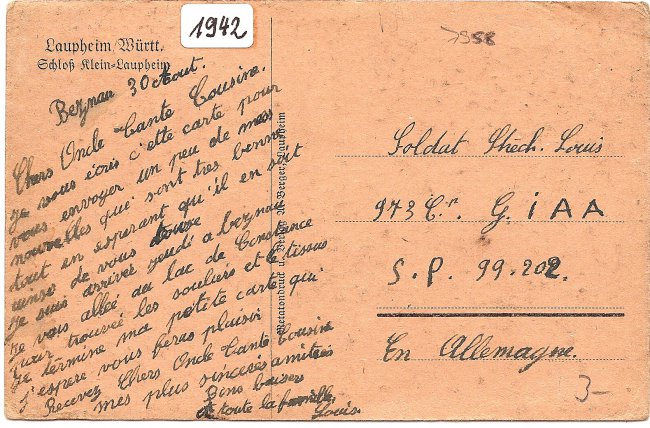 1942
7958
Laupheim, Württ.
Schloß Klein-Laupheim
Beznau 30 Aout.
Chers Oncle Tante Cousine.
Je vous écris c'ette carte pour
vous envoyer un peu de mes
nouvelles qui sont tres bonne
tout en esperant qu'il en soit
de vous
Je suis arriver jeudi a beznau
Je vais allée au lac de Constance
pour trouvée les souliers et le tissus
Je termine ma petite carte qui
J'espere vous feras plaisir
Recevez Chers Oncle Tante Cousine
mes plus sincères amitiés
Bons baisers
de toute la famille
Louis.
Soldat Stech. Louis
973 Cie. G. I A A
S.P. 99.202.
En Allemagne.
3-